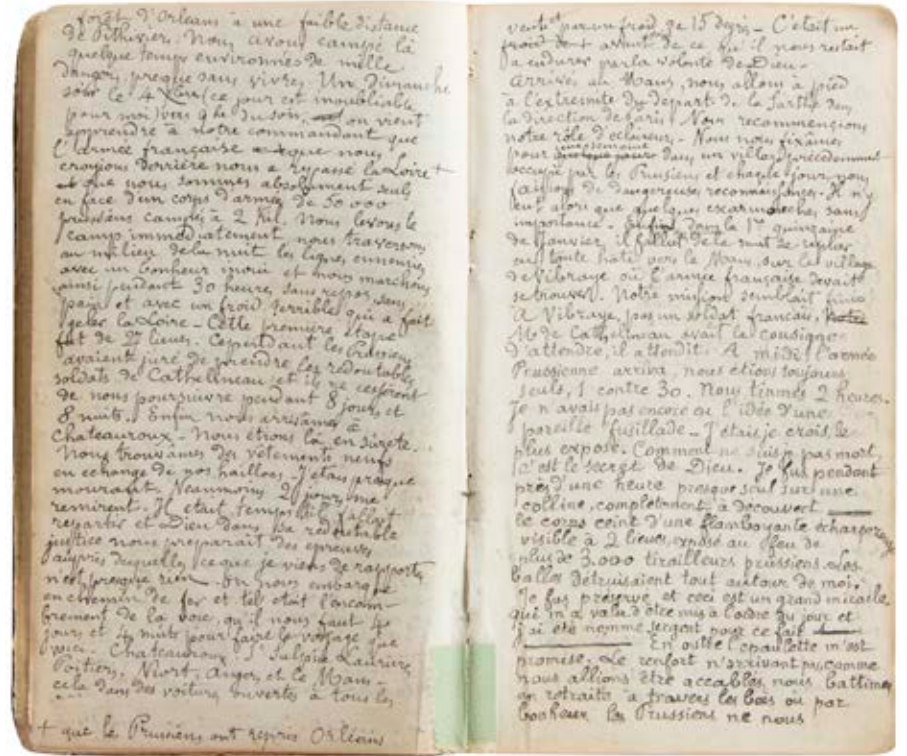 forêt d'Orléans à une faible distance
de Pithiviers. Nous avons campé là
quelque temps environnés de mille
dangers, presque sans vivres. Un dimanche
soir le 4 Xbre (ce jour est inoubliable
pour moi) vers 9h du soir, on vient
apprendre à notre commandant que
l'armée française que nous
croyions derrière nous a repassé la Loire +
et que nous sommes absolument seuls
en face d'un corps d'armée de 50 000
prussiens campés à 2 kil. Nous levons le
camp immédiatement nous traversons
au milieu de la nuit les lignes ennemies
avec un bonheur inouï et nous marchons
ainsi pendant 30 heures sans repos, sans
pain et avec un froid terrible qui a fait
geler la Loire - Cette première étape
fut de 27 lieues. Cependant les Prussiens
avaient juré de prendre les redoutables
soldats de Cathelineau et ils ne cessèrent
de nous poursuivre pendant 8 jours et
8 nuits. Enfin nous arrivâmes à
Chateauroux - Nous étions là en sûreté.
Nous trouvâmes des vêtements neufs
en échange de nos haillons. J'étais presque
mourant. Néanmoins 2 jours me
remirent. Il était temps, il fallait
repartir et Dieu dans sa redoutable
justice nous préparait des épreuves
auprès desquelles ce que je viens de rapporter
n'est presque rien. On nous embarque
en chemin de fer et tel était l'encom-
brement de la voie, qu'il nous faut 4
jours et 4 nuits pour faire le voyage que
voici. Chateauroux, St Sulpice Laurière,
Poitiers, Niort, Angers et le Mans -
cela dans des voitures ouvertes à tous les
+ que les Prussiens ont repris Orléans
vents et par un froid de 15 degrés - C'était un
froid dont avant de ce qu'il nous restait
à endurer par la volonté de Dieu -
Arrivés au Mans, nous allons à pied
à l'extrémité du départ. de la Sarthe dans
la direction de Paris. Nous recommençons
notre rôle d'éclaireurs - Nous nous fixâmes
pour une semaine dans un village précédemment
occupé par les Prussiens et chaque jour nous
faisions de dangereuses reconnaissances. Il n'y
eut alors que quelques escarmouches sans
importance. Enfin dans la 1re quinzaine
de janvier, il fallut de la nuit se replier
en toute hâte vers le Mans, sur le village
de Vibraye où l'armée française devait
se trouver. Notre mission semblait finie
A Vibraye, pas un soldat français. Notre
M. de Cathelineau avait la consigne
d'attendre, il attendit. A midi l'armée
Prussienne arriva, nous étions toujours
seuls, 1 contre 30. Nous tînmes 2 heures.
Je n'avais pas encore eu l'idée d'une
pareille fusillade - J'étais je crois, le
plus exposé. Comment ne suis-je pas mort,
c'est le secret de Dieu. Je fus pendant
près d'une heure presque seul sur une
colline, complètement à découvert
le corps ceint d'une flamboyante écharpe rouge
visible à 2 lieues, exposé au feu de
plus de 3.000 tirailleurs prussiens. Les
balles détruisaient tout autour de moi.
Je fus préservé et ceci est un grand miracle
qui m'a valu d'être mis à l'ordre du jour et
j'ai été nommé sergent pour ce fait
En outre l'épaulette m'est
promise. Le renfort n'arrivant pas, comme
nous allions être accablés, nous battîmes
en retraite à travers les bois où par
bonheur les Prussiens ne nous